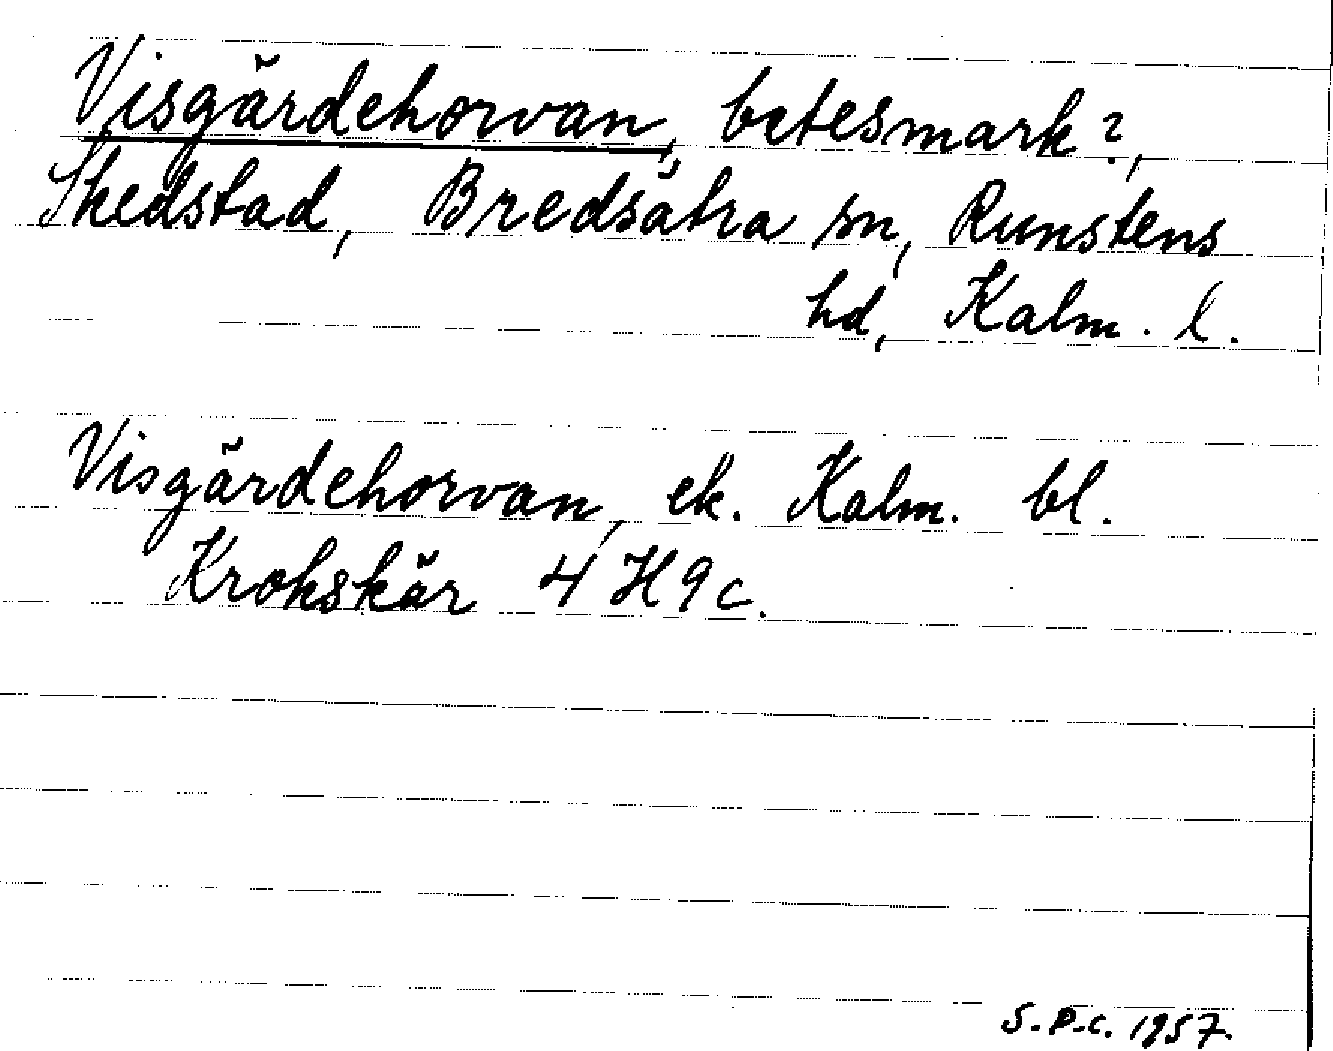 Visgärdehorvan, betesmark?,
Skedstad, Bredsätra sn, Runstens
hd, Kalm. l.
Visgärdehorvan, ek. Kalm. bl.
Krokskär 4 H 9 c.
S.P.C. 1957.